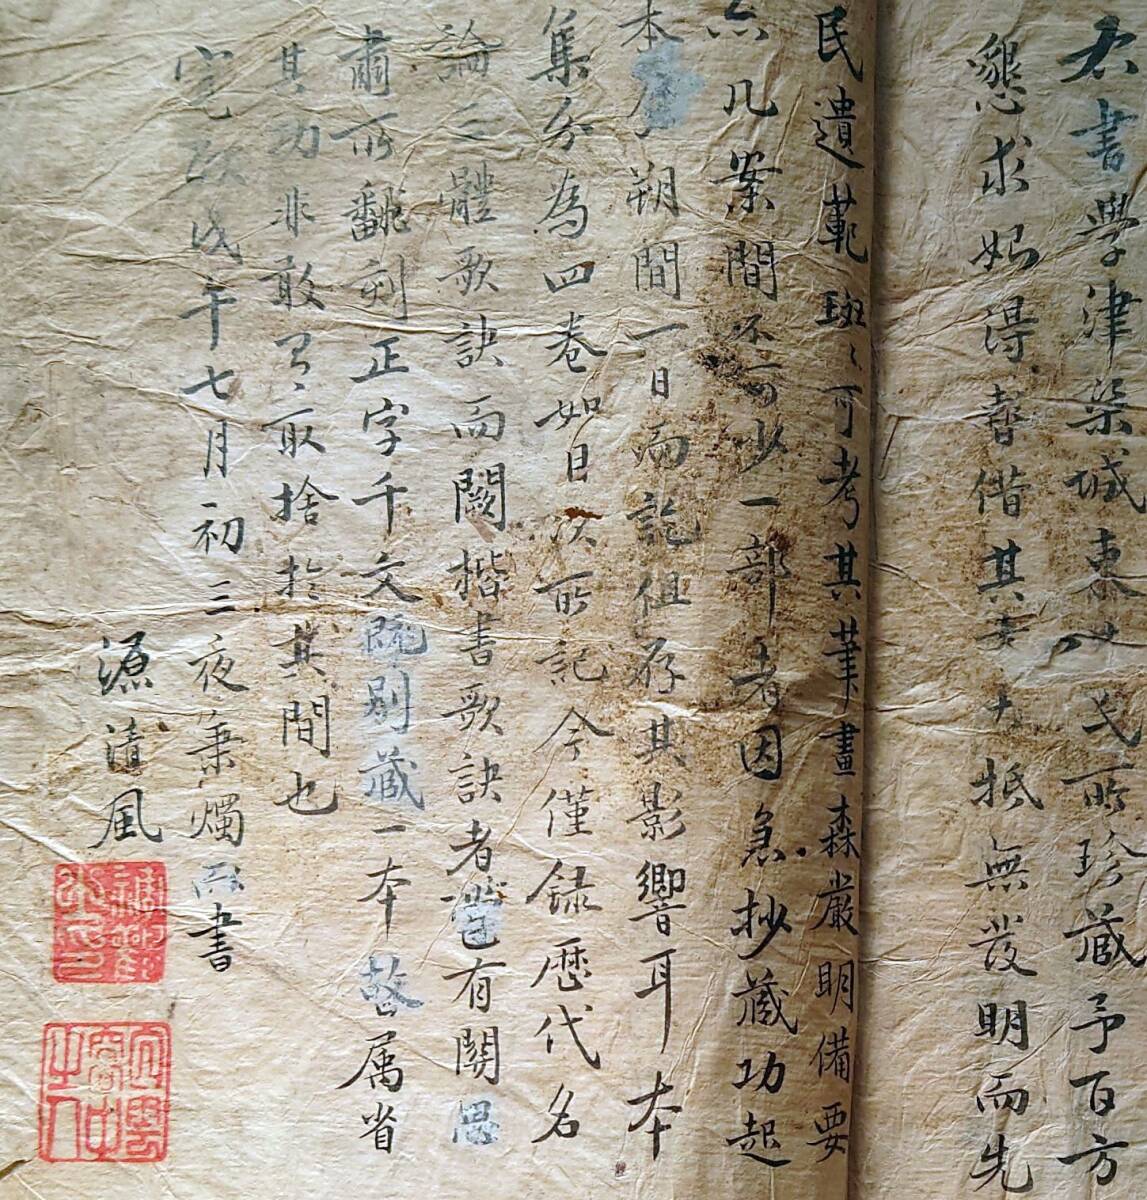 右書學津梁城東 氏所珍藏予百方
懇求始得暫借其書大抵無發明而先
民遺範班〻可考其筆畫森嚴明備要
亦几案間不可少一部者因急抄藏功起
本月朔間一日而訖但存其影響耳本
集分為四卷如日次所記今僅録歴代名
論之體歌訣而闕楷書歌訣者 有關
肅所翻刻正字千文既別藏一本故属省
其功非敢有取捨於其間也
戊午七月初三夜秉燭而書
源清風